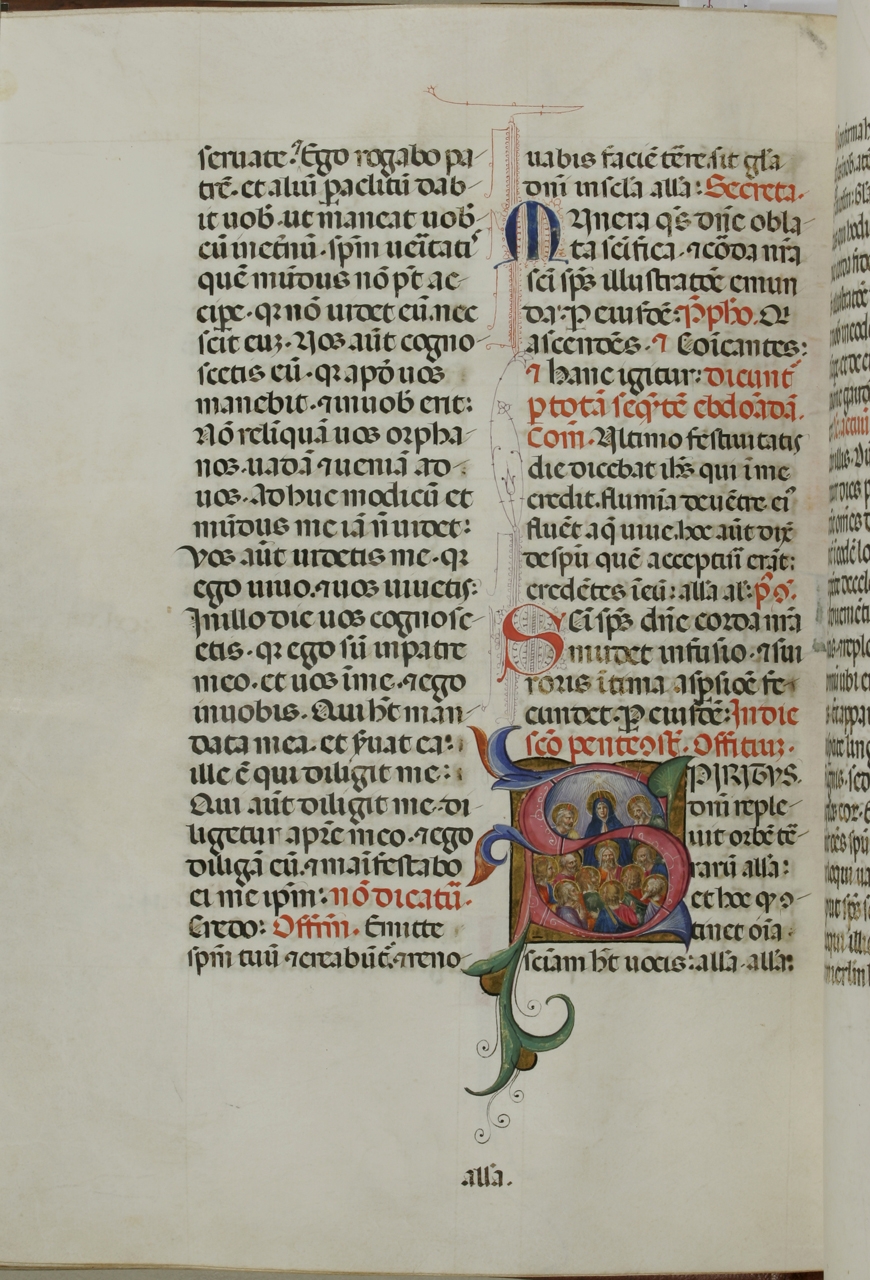 seruate. Ego rogabo pa
trē. et aliū paclitū dab
it uob. ut maneat uob
cū inet̄nū. sp̄m ueritati
quē mūdus nō p̄t ac
cipe. qꝛ nō uidet eū. nec
scit euꝫ. Uos aūt cogno
scetis eū. qꝛ apð uos
manebit. ⁊ inuob erit:
Nō reliquā uos orpha
nos. uadā ⁊ ueniā ad
uos. Adhuc modicū et
mūdus me iā n̄ uidet:
Vos aūt uidetis me. qꝛ
ego uiuo. ⁊ uos uiuetis:
Inillo die uos cognosc
etis. qꝛ ego sū inpatre
meo. et uos īme. ⁊ ego
inuobis. Qui h̄t man
data mea. et s̄uat ea:
ille ē qui diligit me:
Qui aūt diligit me. di
ligetur apr̄e meo. ⁊ ego
diligā eū. ⁊ maīfestabo
ei me ip̄m: nō dicatū.
Credo: Offm̄. Emitte
sp̄m tuū ⁊ creabūt. ⁊ reno
uabis faciē tēre. sit gl̄a
dn̄i in sc̄la alla: Secreta.
Munera qs̄ dn̄e obla
ta sc̄ifica. ⁊ cōda nr̄a
sc̄i sp̄s illustratōe emun
da. ꝑ eiusdē: p̄pho. Qi
ascendēs. ⁊ Coīcantes:
⁊ hanc igitur: dicunt
ꝑ totā seq̄tē ebdōadā.
Com̄. Ultimo festiuitatis
die dicebat ih̄s qui īme
credit. flumīa deuētre. ei
fluēt aq̄ uiue. hoc aūt dix̄
despū quē accepturi erāt:
credētes ieū: alla al: p̄o.
Sc̄i sp̄s dn̄e corda nr̄a
mūdet infusio. ⁊ sui
roris ītima aspsiōe fe
cundet. ꝑ eiusdē: In die
sc̄o pentecost̄. Offitiuꝫ.
SPIRITUS
dn̄i reple
uit orbē tē
rarū alla:
et hoc qꝫ ꝯ
tinet oīa
sciam h̄t uocis: alla. alla:
alla.